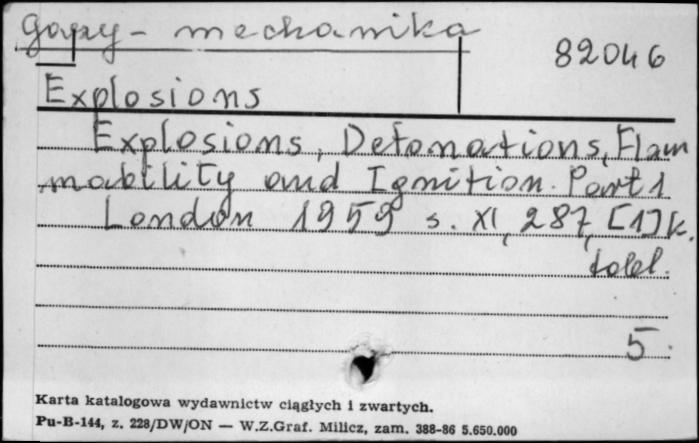 Gazy - mechanika
82046
Explosions
Explosions, Detonations, Flam
mability and Ignition. Part 1
London 1959 s. XI, 287, [1] k.
tabl.
5.
Karta katalogowa wydawnictw ciągłych i zwartych.
Pu-B-144, z. 228/DW/ON — W.Z.Graf. Milicz, zam. 388-86 5.650.000